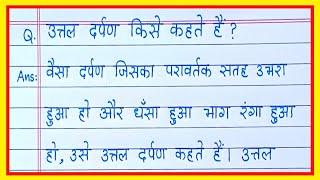 Q. उत्तल दर्पण किसे कहते हैं ?
Ans: वैसा दर्पण जिसका परावर्तक सतह उभरा
हुआ हो और धँसा हुआ भाग रंगा हुआ
हो, उसे उत्तल दर्पण कहते हैं। उत्तल